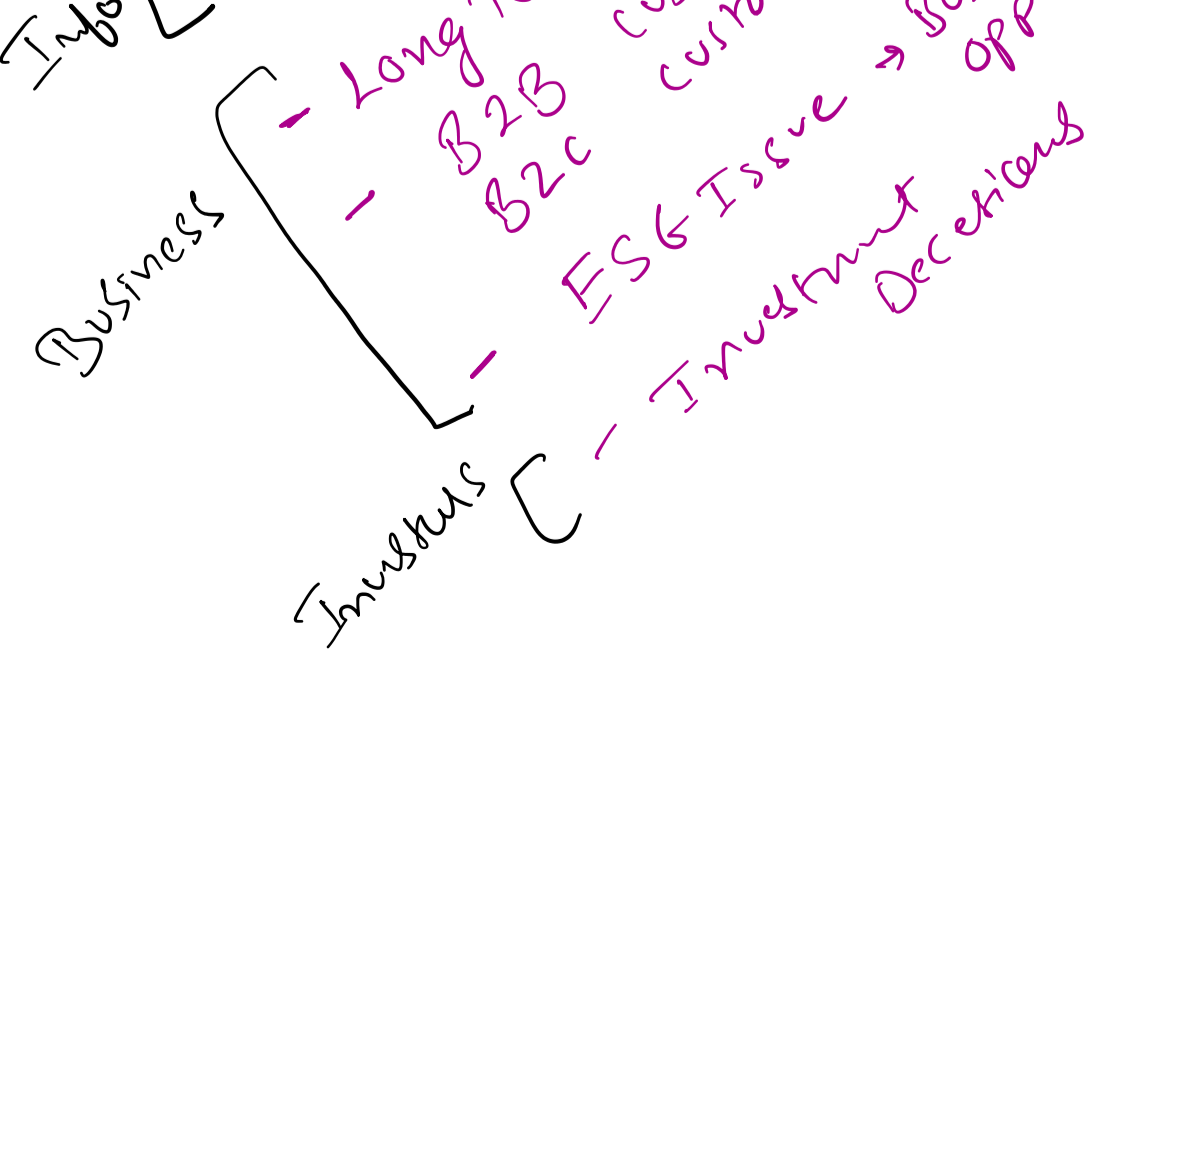 Info
Business
- Long
- B2B
B2C
- ESG Issue →
OPP
Investors
- Investment
Decesions